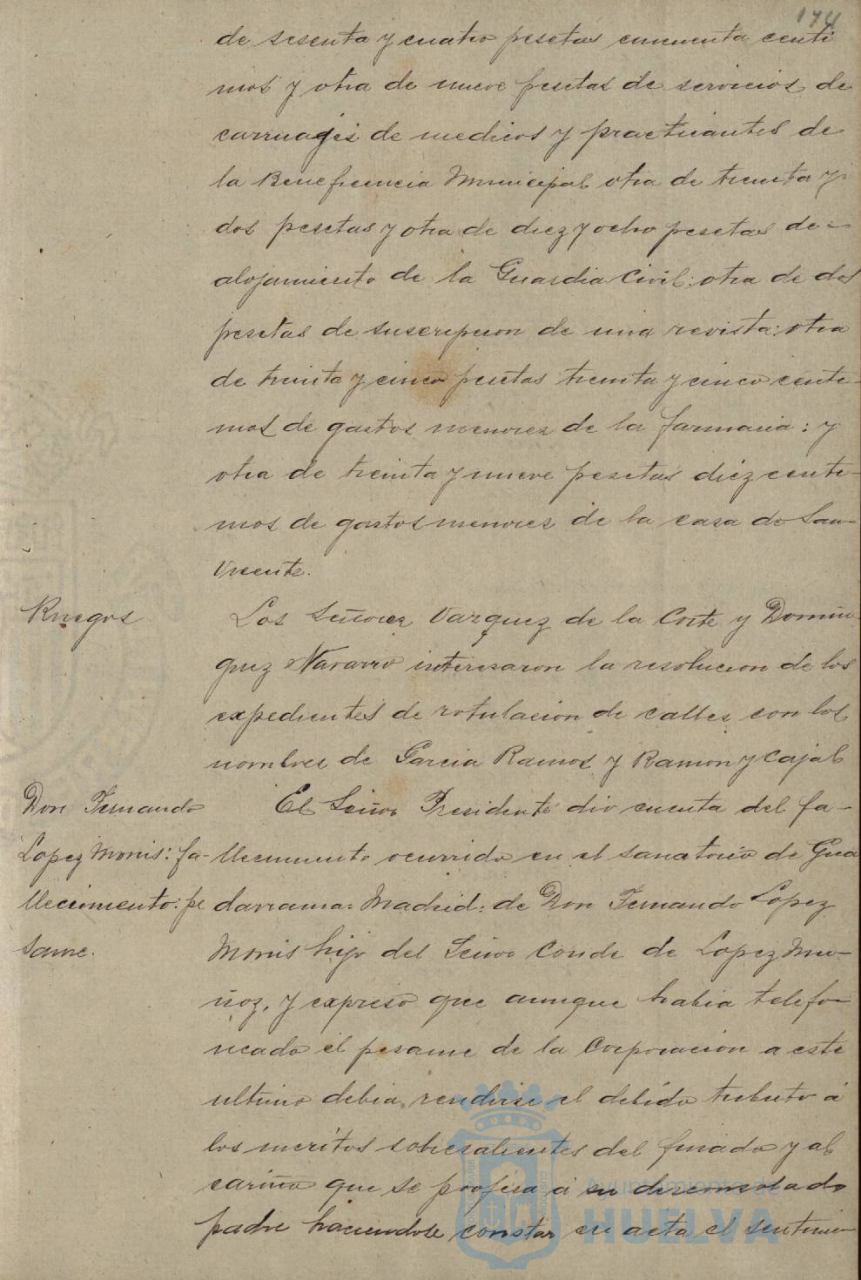 174
de sesenta y cuatro pesetas cincuenta centi
mos y otra de nueve pesetas de servicios de
carruajes de medicos y practicantes de
la Beneficencia Municipal otra de treinta y
dos pesetas y otra de diez y ocho pesetas de =
alojamiento de la Guardia Civil: otra de dos
pesetas de suscripcion de una revista: otra
de treinta y cinco pesetas treinta y cinco centi-
mos de gastos menores de la farmacia: y
otra de treinta y nueve pesetas diez centi-
mos de gastos menores de la casa de San
Vicente.
Ruegos
Los Señores Vazquez de la Corte y Domin
guez Navarro interesaron la resolucion de los
expedientes de rotulacion de calles con los
nombres de Garcia Ramos y Ramon y Cajal
Don Fernando
Lopez Monis: fa-
llecimiento: pe
same.
El Señor Presidente dio cuenta del fa-
llecimiento ocurrido en el sanatorio de Gua
darrama: Madrid: de Don Fernando Lopez
Monis hijo del Señor Conde de Lopez Mu-
ñoz, y expreso que aunque habia telefo-
neado el pesame de la Corporacion a este
ultimo debia rendirse el debido tributo á
los meritos sobresalientes del finado y al
cariño que se profesa á su desconsolado
padre haciendose constar en acta el sentimien
Ayuntamiento de
HUELVA